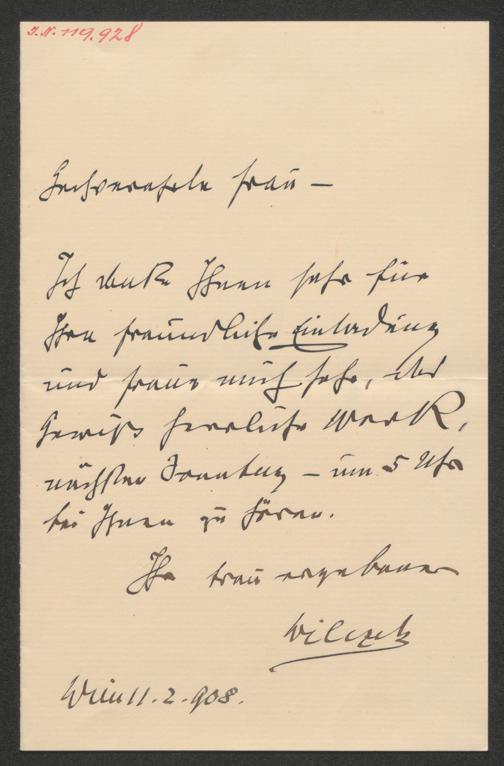 J.N. 119.928
Hochverehrte Frau –
Ich danke Ihnen sehr für
Ihre freundliche Einladung
und freue mich sehr, das
gewiß herrliche Werk,
nächsten Sonntag – um 5 Uhr
bei Ihnen zu hören.
Ihr treu ergebener
Wilczek
Wien 11. 2. 908.